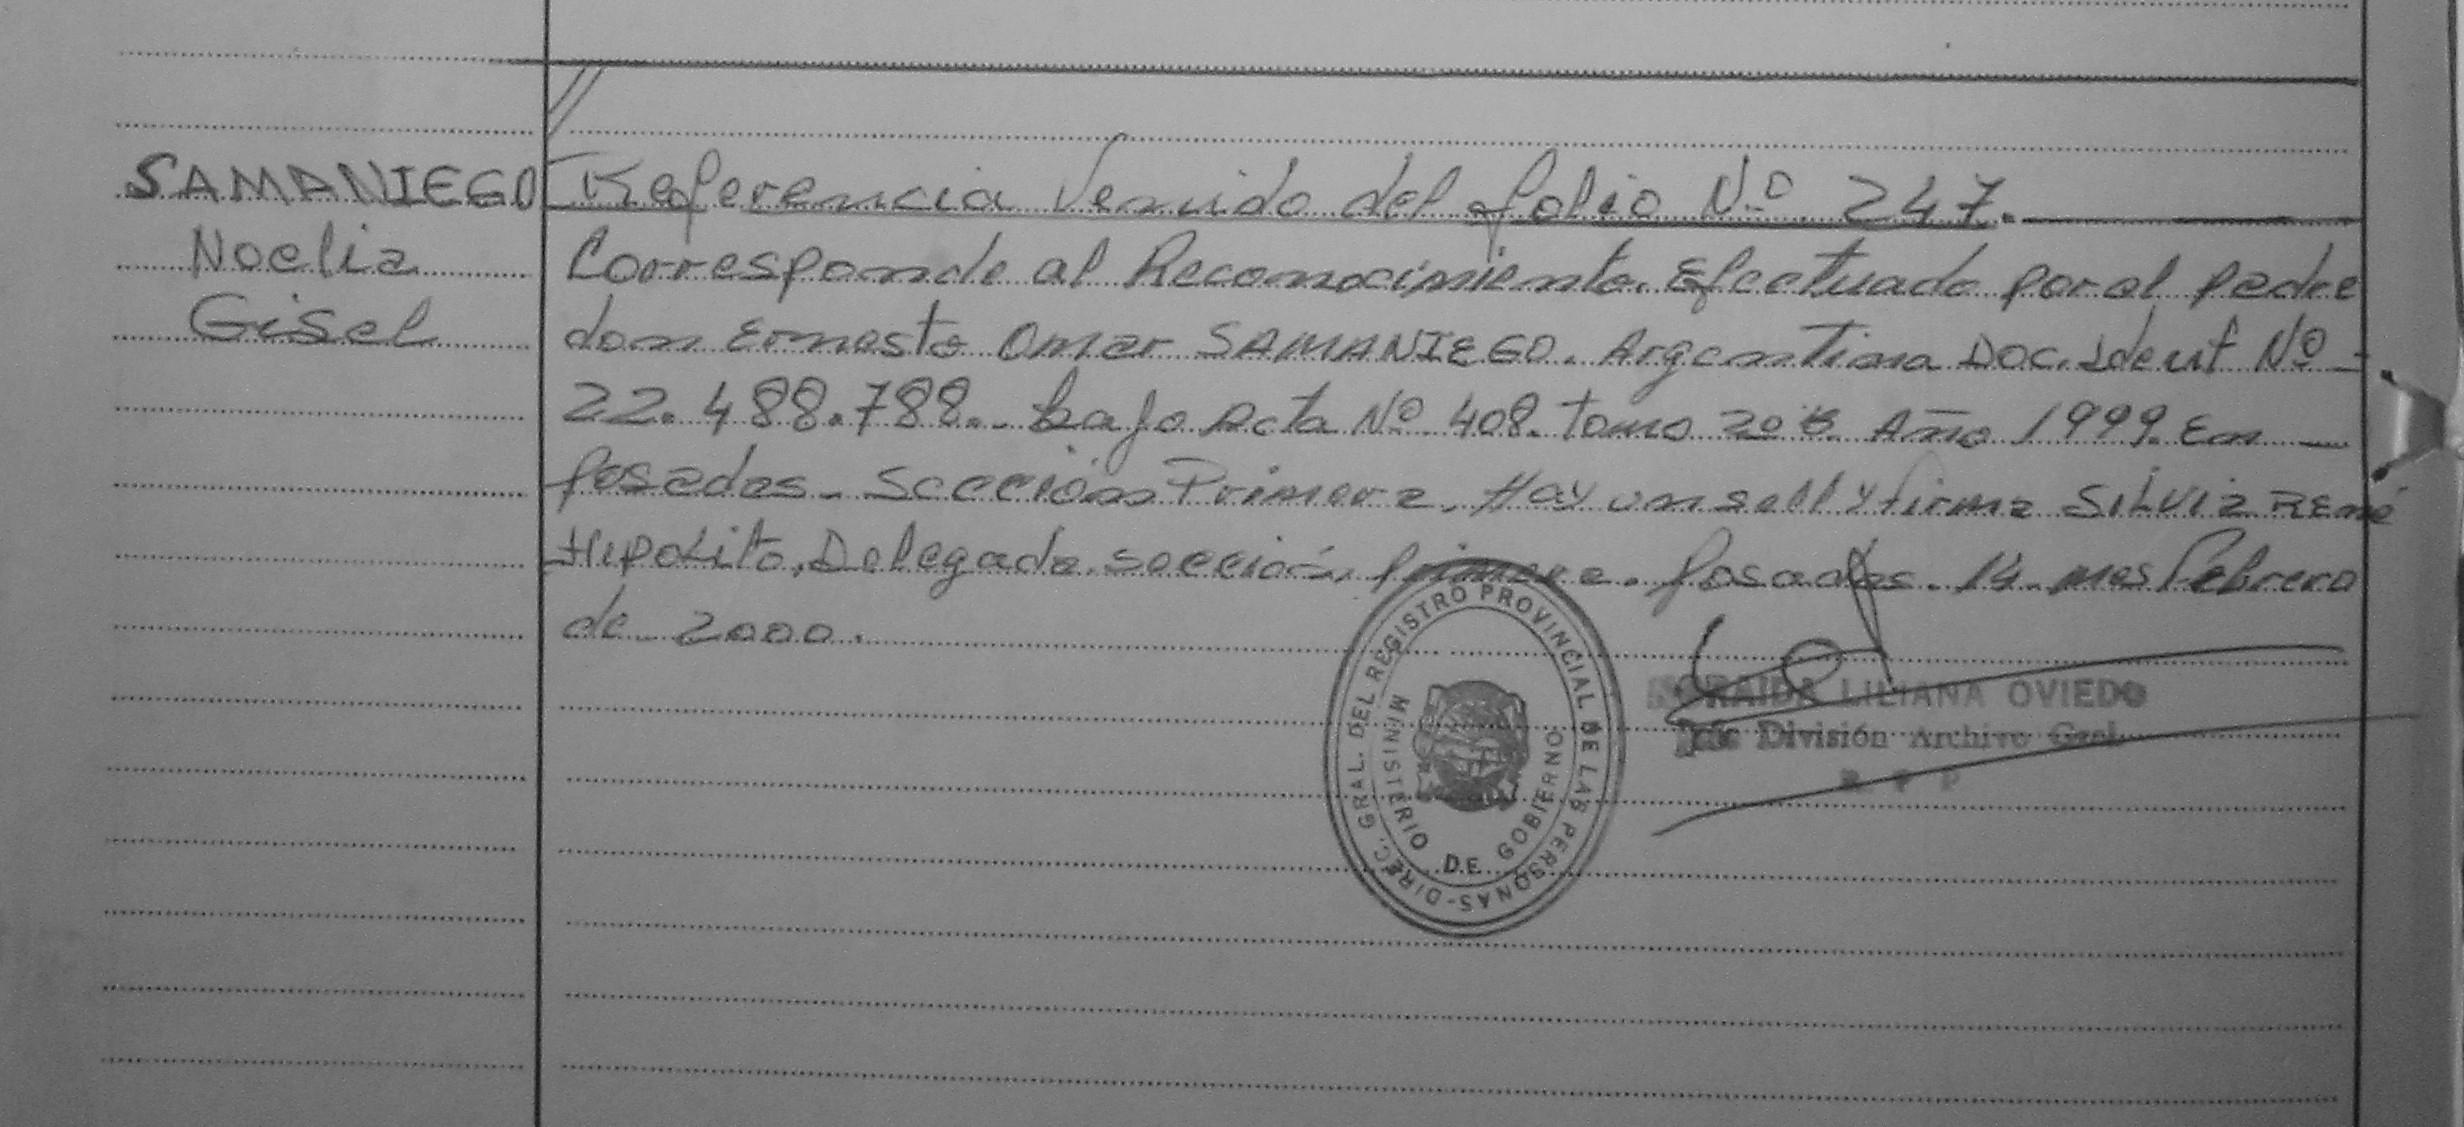 SAMANIEGO
Noelia
Gisel
Referencia Venido del folio Nº 247.
Corresponde al Reconocimiento. Efectuado por el padre
don Ernesto Omar SAMANIEGO. Argentino Doc. Ident Nº -
22.488.788.- bajo Acta Nº 408. Tomo 20 B. Año 1999. En —
Posadas - Sección Primera. Hay un sell y firma SILVIA RENÉ
HIPOLITO, Delegada sección primera. Posadas. 14 mes Febrero
de 2000.
DIREC. GRAL. DEL REGISTRO PROVINCIAL DE LAS PERSONAS-
MINISTERIO DE GOBIERNO
LILIANA OVIEDO
División Archivo Gral.